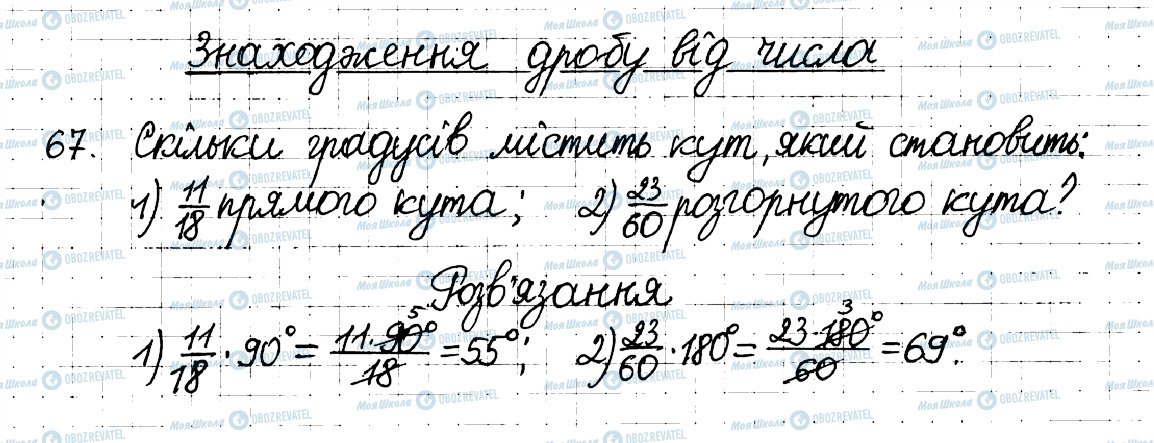 Знаходження дробу від числа
67. Скільки градусів містить кут, який становить:
1) 11/18 прямого кута; 2) 23/60 розгорнутого кута?
Розв'язання
1) 11/18 · 90° = 11·90°/18 5 = 55°; 2) 23/60 · 180° = 23·180°/60 3 = 69°.
Моя Школа OBOZREVATEL